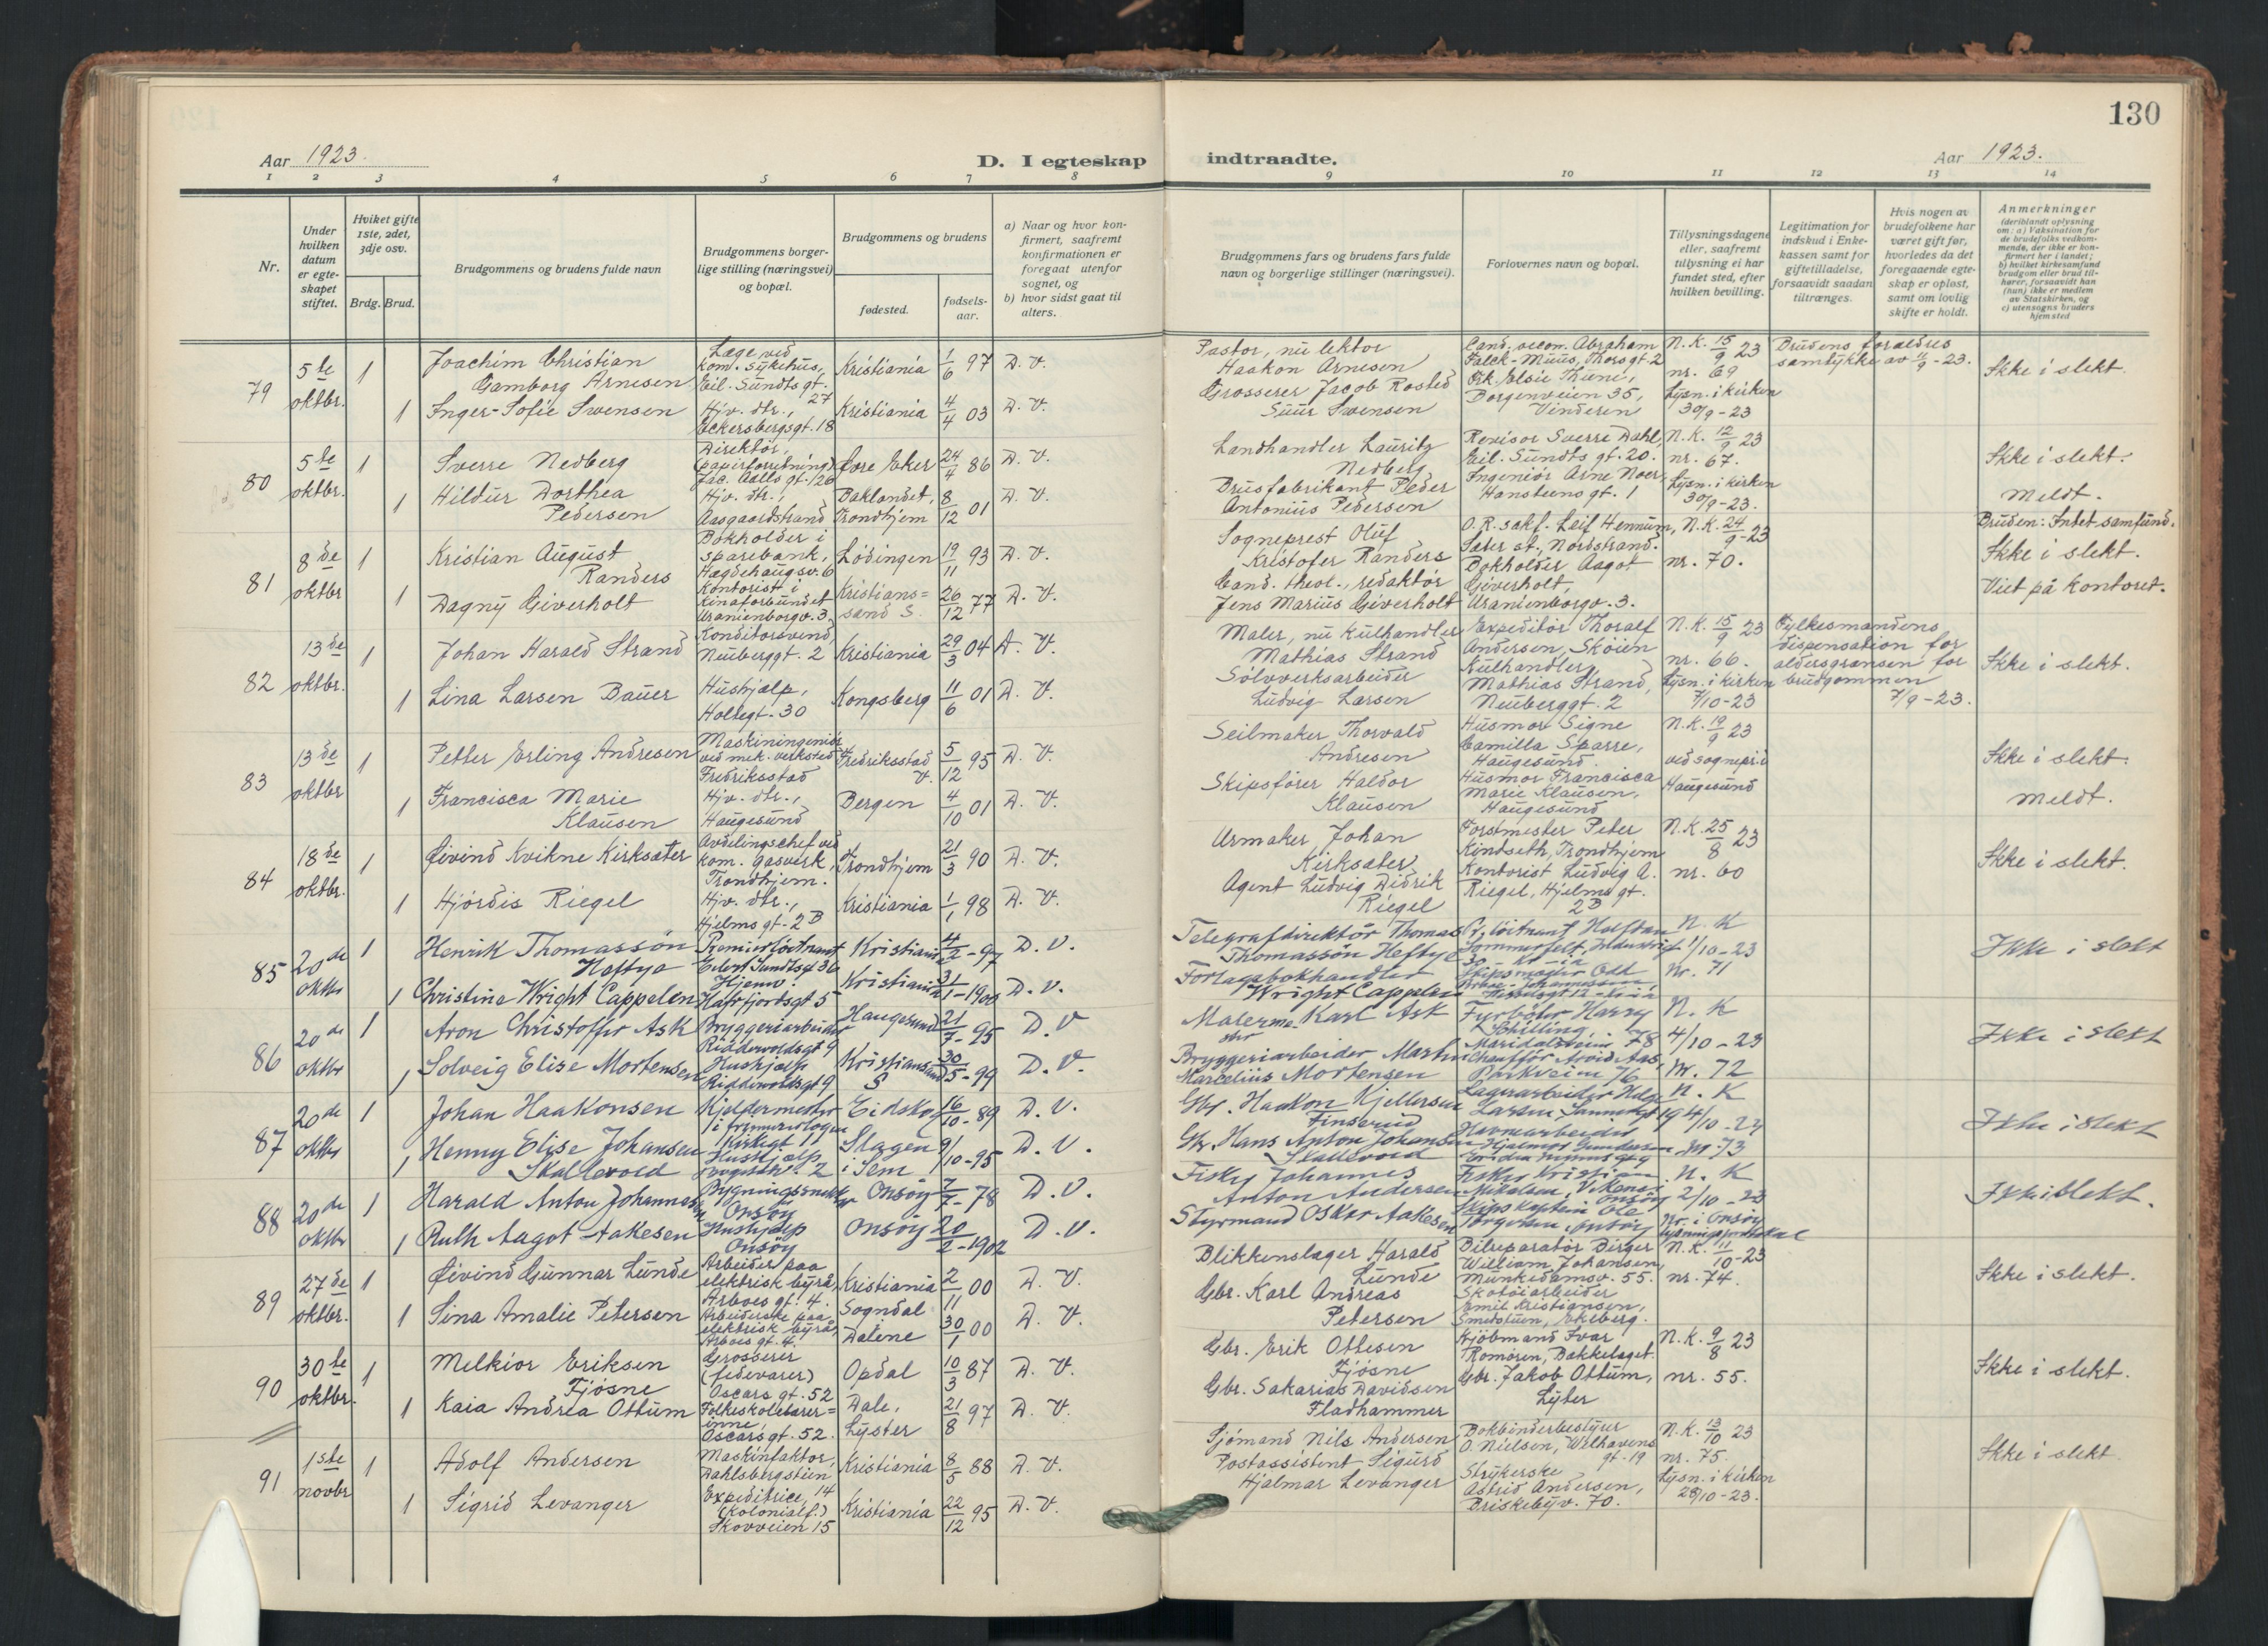 130
Aar 1923.
D. I egteskap indtraadte.
Aar 1923.
1 2 3 4 5 6 7 8 9 10 11 12 13 14
Nr.
Under hvilken datum er egteskapet stiftet.
Hviket gifte 1ste, 2det, 3dje osv.
Brdg. Brud.
Brudgommens og brudens fulde navn
Brudgommens borger-
lige stilling (næringsvei)
og bopæl.
Brudgommens og brudens
fødested.
fødsels-
aar.
a) Naar og hvor kon-
firmert, saafremt
konfirmationen er
foregaat utenfor
sognet, og
b) hvor sidst gaat til
alters.
Brudgommens fars og brudens fars fulde
navn og borgerlige stillinger (næringsvei).
Forlovernes navn og bopæl.
Tillysningsdagene
eller, saafremt
tillysning ei har
fundet sted, efter
hvilken bevilling.
Legitimation for
indskud i Enke-
kassen samt for
giftetilladelse,
forsaavidt saadan
tiltrænges.
Hvis nogen av
brudefolkene har
været gift før,
hvorledes da det
foregaaende egte-
skap er opløst,
samt om lovlig
skifte er holdt.
Anmerkninger
(deriblandt oplysning
om: a) Vaksination for
de brudefolks vedkom-
mende, der ikke er kon-
firmert her i landet;
b) hvilket kirkesamfund
brudgom eller brud til-
hører, forsaavidt han
(hun) ikke er medlem
av Statskirken, og
c) utensogns bruders
hjemsted
79 5te oktbr. 1 Joachim Christian Gamborg Arnesen Læge ved kom. sykehus, Eil. Sundts gt. 27 Kristiania 1/6 97 D. V. Pastor, nu lektor Haakon Arnesen Cand. oecon. Abraham Falck-Muus, Thors gt. 2 N.K. 15/9 23 nr. 69 Brudens forældres samtykke av 11/9-23. Ikke i slekt.
1 Inger-Sofie Svensen Hjv. dtr., Eckersbergsgt. 18 Kristiania 4/4 03 D. V. Grosserer Jacob Rosted Suur Svensen Frk. Elsie Thune, Borgenveien 35, Vinderen Lysn. i kirken 30/9-23
80 5te oktbr. 1 Sverre Nedberg Direktør, (papirforretning) Jac. Aalls gt. 126 Øvre Eker 24/4 86 D. V. Landhandler Lauritz Nedberg Revisor Sverre Dahl, Eil. Sundts gt. 20. N.K. 12/9 23 nr. 67. Ikke i slekt.
1 Hildur Dorthea Pedersen Hjv. dtr., Aasgaardstrand Baklandet, Trondhjem 8/12 01 D. V. Brusfabrikant Peder Antonius Pedersen Ingeniør Arne Noer, Hansteens gt. 1 Lysn. i kirken 30/9-23. Meldt.
81 8de oktbr 1 Kristian August Randers Bokholder i sparebank, Hægdehaugsv. 6 Lødingen 19/11 93 D. V. Sogneprest Oluf Kristofer Randers O.R. sakf. Leif Hennum, Sæter st., Nordstrand. N.K. 24/9-23 nr. 70. Bruden: Intet samfund. Ikke i slekt.
1 Dagny Giverholt Kontorist i Kinaforbundet Uranienborgv. 3 Kristians=sand S. 26/12 77 D. V. Cand. theol., redaktør Jens Marius Giverholt Bokholder Aagot Giverholt, Uranienborgv. 3. Viet på kontoret.
82 13de oktbr. 1 Johan Harald Strand Konditorsvend, Neuberggt. 2 Kristiania 29/3 04 D. V. Maler, nu kulhandler Mathias Strand Expeditør Thoralf Andersen, Skøien N.K. 15/9 23 nr. 66. Fylkesmandens dispensation for aldersgrænsen for brudgommen 7/9-23. Ikke i slekt.
1 Lina Larsen Bauer Hushjælp, Holtegt. 30 Kongsberg 11/6 01 D. V. Sølvverksarbeider Ludvig Larsen Kulhandler Mathias Strand, Neuberggt. 2 Lysn. i kirken 7/10-23
83 13de oktbr 1 Petter Erling Andresen Maskiningeniør ved mek. verksted Fredriksstad Fredriksstad V. 5/12 95 D. V. Seilmaker Thorvald Andresen Husmor Signe Camilla Sparre, Haugesund. N.K. 19/9 23 ved sognepr. i Haugesund Ikke i slekt.
1 Francisca Marie Klausen Hjv. dtr., Haugesund Bergen 4/10 01 D. V. Skipsfører Haldor Klausen Husmor Francisca Marie Klausen, Haugesund Meldt.
84 18de oktbr. 1 Øivind Kvikne Kirksæter Avdelingschef ved kom. gasverk, Trondhjem. Trondhjem 21/3 90 D. V. Urmaker Johan Kirksæter Forstmester Peter Kindseth, Trondhjem N.K. 25/8 23 nr. 60 Ikke i slekt.
1 Hjørdis Riegel Hjv. dtr., Hjelms gt. 2B Kristiania 1/1 98 D. V. Agent Ludvig Didrik Riegel Kontorist Ludvig A. Riegel, Hjelms gt. 2B
85 20de oktbr 1 Henrik Thomassøn Heftye Premierløitnant Eilert Sundtsgt 36 Kristiania 4/2-97 D. V. Telegrafdirektør Thomas Thomassøn Heftye Pr. løitnant Halfdan Sommerfelt N. K 1/10-23 Nr. 71 Ikke i slekt
1 Christine Wright Cappelen Hjemv. Hafrsfjordsgt 5 Kristiania 31/1-1900 D. V. Forlagsbokhandler Wright Cappelen Skipsmægler Odd
86 20de oktbr 1 Aron Christoffer Ask Bryggeriarbeider Riddervoldsgt 9 Haugesund 21/7-95 D. V Malerme=ster Karl Ask Fyrbøter Harry Schilling, Maridalsveien 78 N. K 4/10-23 Nr. 72 Ikke i slekt
1 Solveig Elise Mortensen Hushjælp Riddervoldsgt 9 Kristiansand S 30/5-99 D. V. Bryggeriarbeider Martin Marcelius Mortensen Chauffør Arvid Aas, Parkveien 76
87 20de oktbr 1 Johan Haakonsen Kjeldermester i frimurerlogen Eidskog 16/10-89 D. V. Gbr. Haakon Kjellersen Finsrud Lagerarbeider Helge Larsen Sannergt 19 N. K 4/10-23 Nr. 73 Ikke i slekt
1 Henny Elise Johansen Skallevold Hushjælp Slagen i Sem 9/10-95 D. V. Gbr. Hans Anton Johansen Skallevold Havnearbeider Hjalmar Gundersen
88 20de oktbr 1 Harald Anton Johannesen Bygningssnekker Onsøy Onsøy 7/7-78 D. V. Fisker Johannes Anton Andersen Fisker Kristian Mikalsen, Vikene, Onsøy N. K 2/10-23 Nr. i Onsøy lysningsprotokol Ikke i slekt.
1 Ruth Aagot Aakesen Hushjælp Onsøy Onsøy 20/2-1902 D. V. Styrmand Oskar Aakesen Skipskaptein Ole Torgersen, Onsøy
89 27de oktbr. 1 Øivind Gunnar Lunde Arbeider paa elektrisk byrå, Arboes gt. 4. Kristiania 2/11 00 D. V. Blikkenslager Harald Lunde Bilreparatør Birger William Johansen, Munkedamsv. 55. N.K. 11/10-23 nr. 74. Ikke i slekt.
1 Sina Amalie Petersen Arbeiderske paa elektrisk byrå, Arboes gt. 4. Sogndal Dalene 30/1 00 D. V. Gbr. Karl Andreas Petersen Skotøiarbeider Emil Kristiansen, Smedstuen, Ekeberg.
90 30te oktbr. 1 Melkior Eriksen Fjøsne Grosserer (fedevarer) Oscars gt. 52 Opdal 10/3 87 D. V. Gbr. Erik Ottesen Fjøsne Kjøbmand Ivar Romøren, Bakkelaget. N.K. 9/8 23 nr. 55. Ikke i slekt.
1 Kaia Andrea Ottum Folkeskolelærer=inne, Oscarsgt. 52. Dale, Lyster 21/8 97 D. V. Gbr. Sakarias Davidsen Fladhammer Gbr. Jakob Ottum, Lyster
91 1ste novbr 1 Adolf Andersen Maskinfaktor, Dahlsbergstien 14 Kristiania 8/5 88 D. V. Sjømand Nils Andersen Bokbinderbestyrer O. Nielsen, Welhavens gt. 19 N.K. 13/10 23 nr. 75. Ikke i slekt.
1 Sigrid Levanger Expeditrice (kolonialf.) Skovveien 15 Kristiania 22/12 95 D. V. Postassistent Sigurd Hjalmar Levanger Strykerske Astrid Andersen, Briskebyv. 70. Lysn. i kirken 28/10-23.